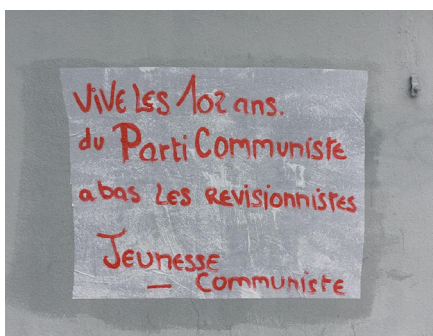 ViVE LES 102 ans.
du Parti Communiste
a bas LES REVisionnistes
JEUNESSE
— Communiste